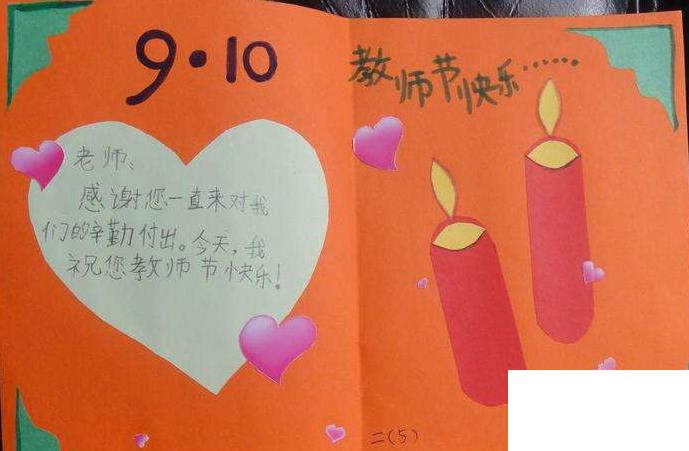 9·10
教师节快乐……
老师：
感谢您一直来对我
们的辛勤付出。今天，我
祝您教师节快乐！
二（5）